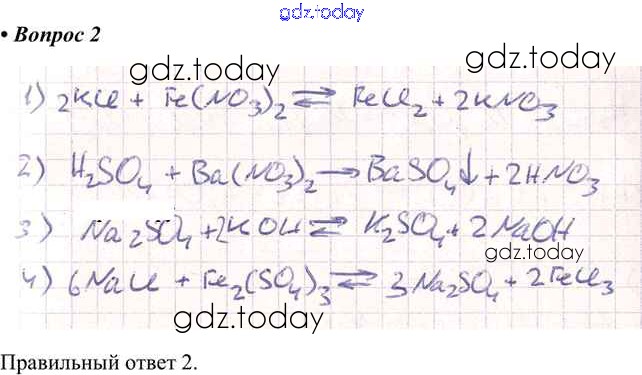 gdz.today
• Вопрос 2
gdz.today
gdz.today
1) 2KCl + Fe(NO₃)₂ ⇄ FeCl₂ + 2KNO₃
2) H₂SO₄ + Ba(NO₃)₂ → BaSO₄↓ + 2HNO₃
3) Na₂SO₄ + 2KOH ⇄ K₂SO₄ + 2NaOH
gdz.today
4) 6NaCl + Fe₂(SO₄)₃ ⇄ 3Na₂SO₄ + 2FeCl₃
gdz.today
Правильный ответ 2.